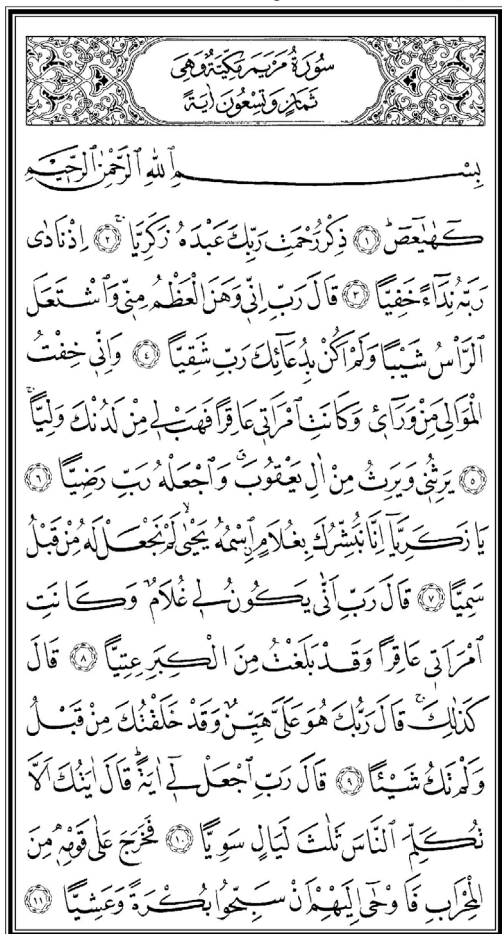 سُورَةُ مَرْيَمَ مَكِّيَّةٌ وَهِيَ
ثَمَانٍ وَتِسْعُونَ اٰيَةً
بِسْمِ اللّٰهِ الرَّحْمٰنِ الرَّحِيْمِ
كٓهٰيٰعٓصٓ ﴿١﴾ ذِكْرُ رَحْمَتِ رَبِّكَ عَبْدَهُ زَكَرِيَّا ﴿٢﴾ اِذْ نَادٰى
رَبَّهُ نِدَٓاءً خَفِيًّا ﴿٣﴾ قَالَ رَبِّ اِنّ۪ي وَهَنَ الْعَظْمُ مِنّ۪ي وَاشْتَعَلَ
الرَّأْسُ شَيْبًا وَلَمْ اَكُنْ بِدُعَٓائِكَ رَبِّ شَقِيًّا ﴿٤﴾ وَاِنّ۪ي خِفْتُ
الْمَوَالِيَ مِنْ وَرَٓائ۪ي وَكَانَتِ امْرَاَت۪ي عَاقِرًا فَهَبْ ل۪ي مِنْ لَدُنْكَ وَلِيًّا
﴿٥﴾ يَرِثُن۪ي وَيَرِثُ مِنْ اٰلِ يَعْقُوبَ وَاجْعَلْهُ رَبِّ رَضِيًّا ﴿٦﴾
يَا زَكَرِيَّٓا اِنَّا نُبَشِّرُكَ بِغُلَامٍ اِسْمُهُ يَحْيٰى لَمْ نَجْعَلْ لَهُ مِنْ قَبْلُ
سَمِيًّا ﴿٧﴾ قَالَ رَبِّ اَنّٰى يَكُونُ ل۪ي غُلَامٌ وَكَانَتِ
امْرَاَت۪ي عَاقِرًا وَقَدْ بَلَغْتُ مِنَ الْكِبَرِ عِتِيًّا ﴿٨﴾ قَالَ
كَذٰلِكَ قَالَ رَبُّكَ هُوَ عَلَيَّ هَيِّنٌ وَقَدْ خَلَقْتُكَ مِنْ قَبْلُ
وَلَمْ تَكُ شَيْـًٔا ﴿٩﴾ قَالَ رَبِّ اجْعَلْ ل۪ٓي اٰيَةً قَالَ اٰيَتُكَ اَلَّا
تُكَلِّمَ النَّاسَ ثَلٰثَ لَيَالٍ سَوِيًّا ﴿١٠﴾ فَخَرَجَ عَلٰى قَوْمِه۪ مِنَ
الْمِحْرَابِ فَاَوْحٰٓى اِلَيْهِمْ اَنْ سَبِّحُوا بُكْرَةً وَعَشِيًّا ﴿١١﴾